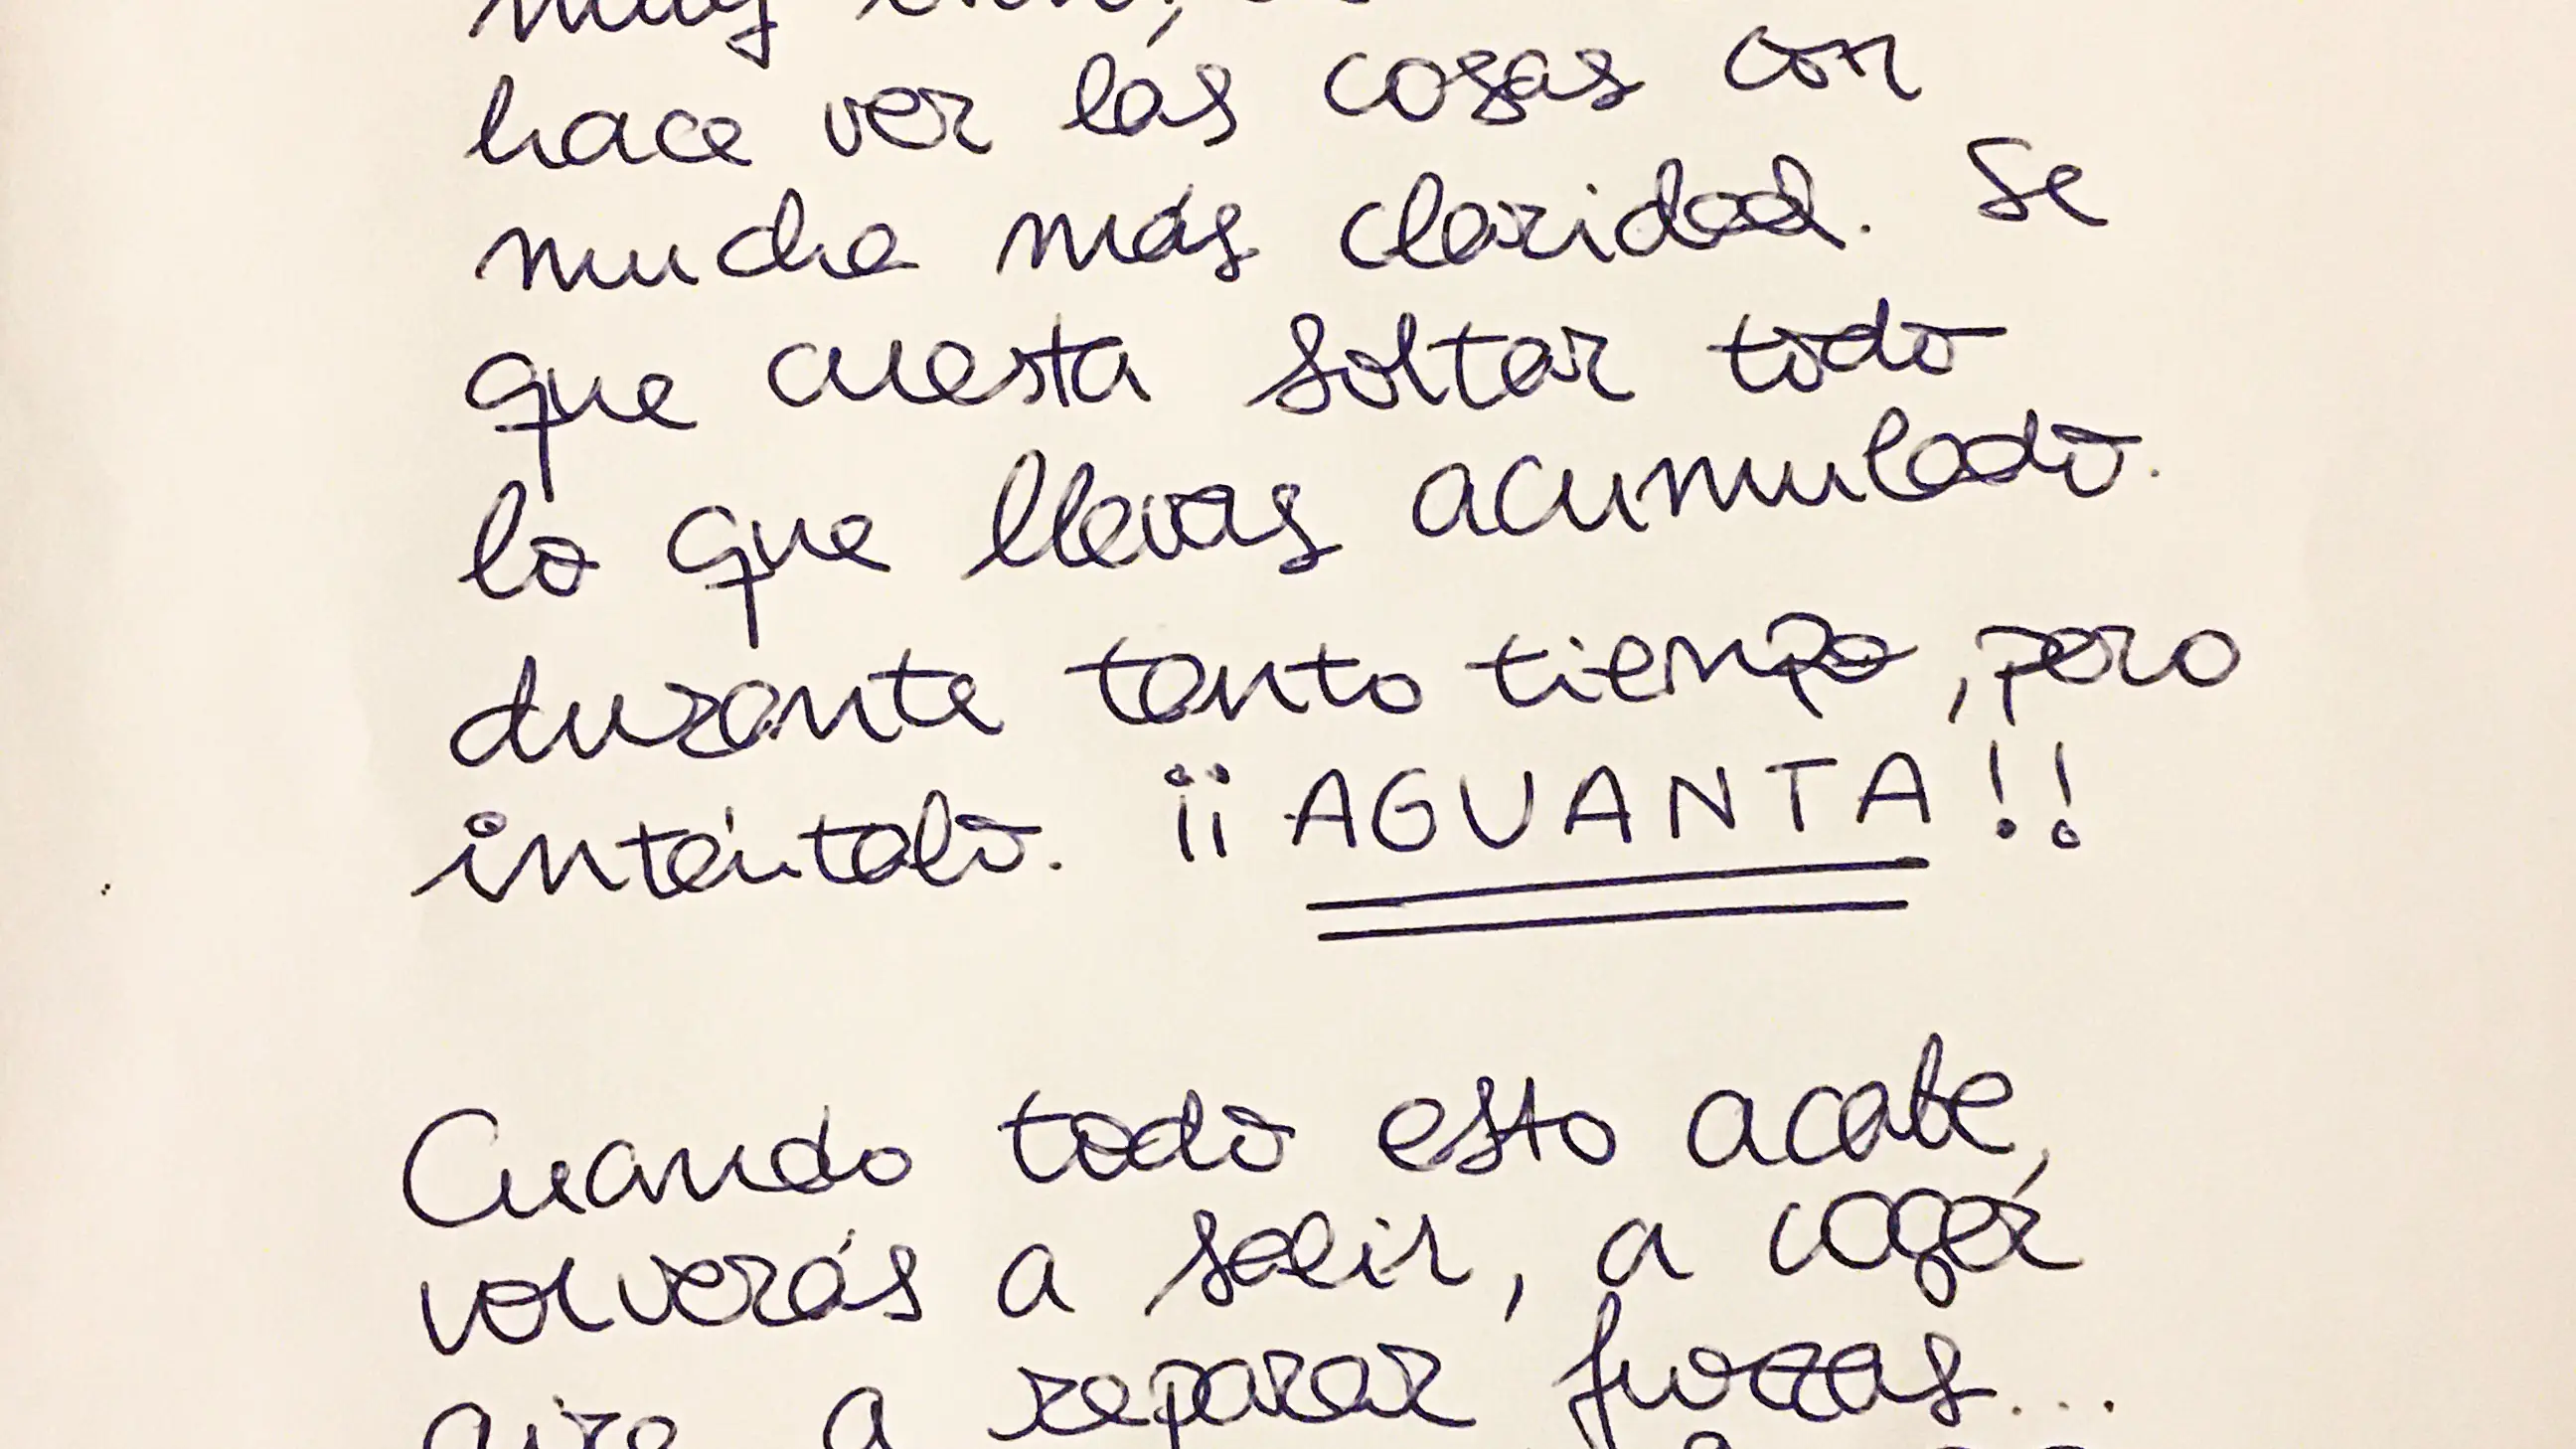 muy
hace ver las cosas con
mucha más claridad. Se
que cuesta soltar todo
lo que llevas acumulado.
durante tanto tiempo, pero
inténtalo. ¡¡AGUANTA!!
Cuando todo esto acabe,
volverás a salir, a coger
aire a reparar fuerzas...